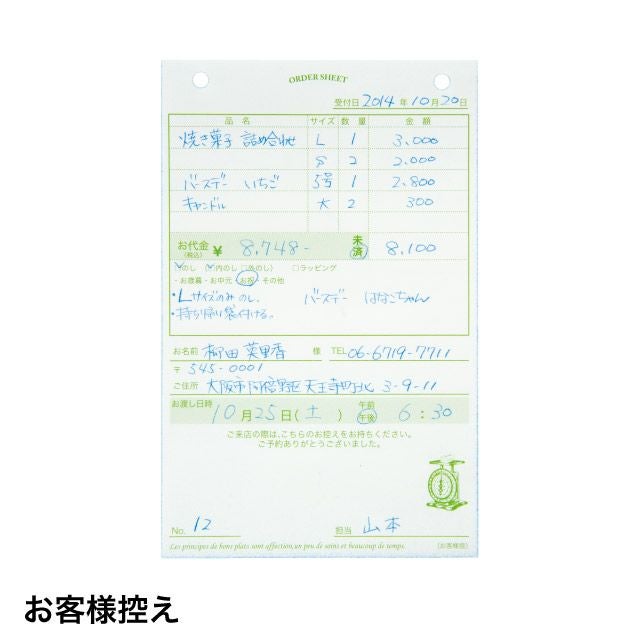 ORDER SHEET
受付日 2014 年 10月 20日
品 名 サイズ 数 量 金 額
焼き菓子 詰め合わせ L 1 3,000
S 2 2,000
バースデー いちご 5号 1 2,800
キャンドル 大 2 300
お代金 (税込) ¥ 8,748- 未 済 8,100
□のし □内のし □外のし) □ラッピング
・お歳暮・お中元 お祝 その他
・Lサイズのみ のし。 バースデー はなこちゃん
・持ち帰り袋付ける。
お名前 柳田 英里香 様 TEL 06-6719-7711
〒545-0001
ご住所 大阪市阿倍野区天王寺町北 3-9-11
お渡し日時 10月25日(土) 午前 午後 6:30
ご来店の際は、こちらのお控えをお持ちください。
ご予約ありがとうございました。
No. 12 担当 山本
Les principes de bons plats sont affection, un peu de soins et beaucoup de temps. (お客様控)
お客様控え